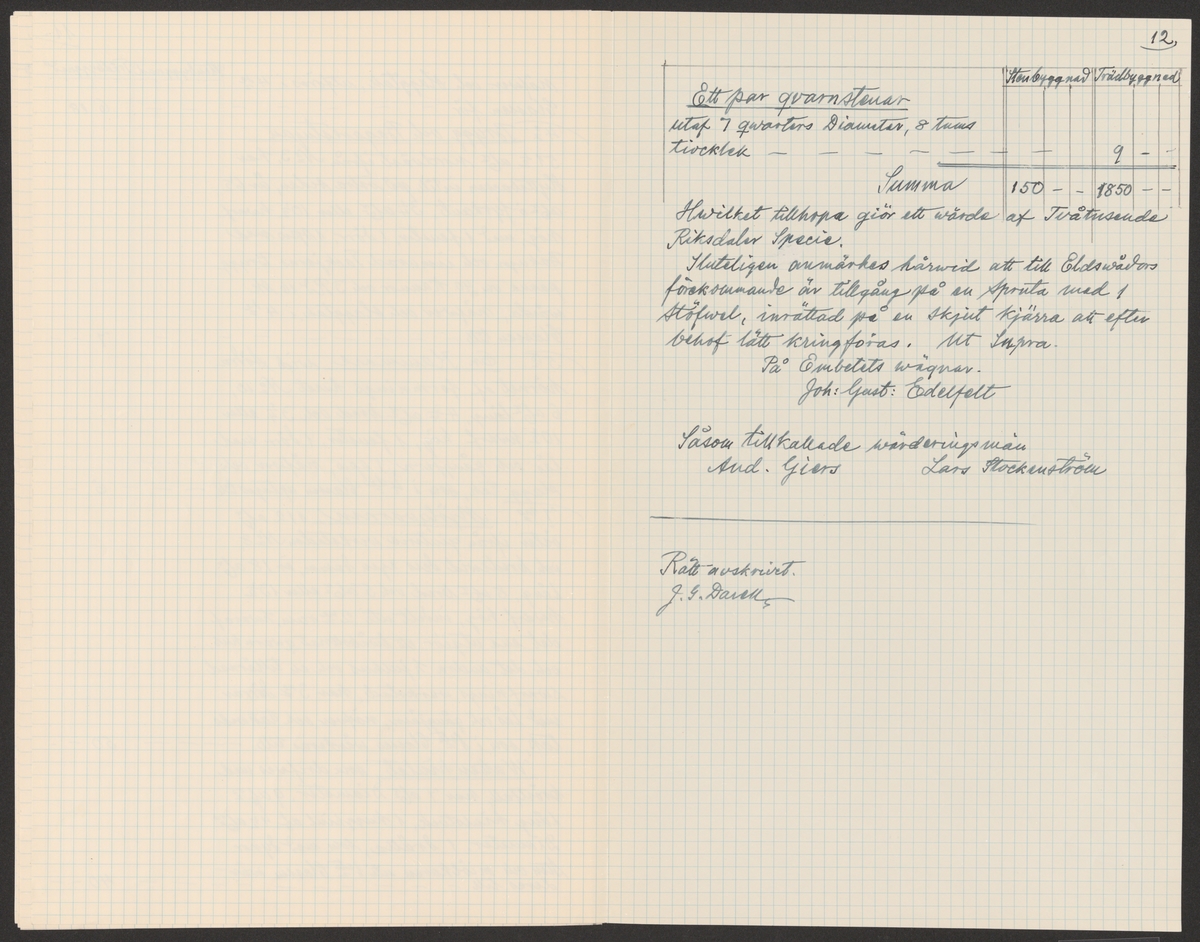 12,
Stenbyggnad Trädbyggnad
Ett par qvarnstenar
utaf 7 qwarters Diameter, 8 tums
tiocklek — — — — — — — 9 - -
Summa 150 - - 1850 - -
Hwilket tillhopa giör ett wärde af Tvåtusende
Riksdaler Specie.
Sluteligen anmärkes härwid att till Eldswådors
förekommande är tillgång på en Spruta med 1
Stöfwel, inrättad på en skjut kjärra att efter
behof lätt kringföras. Ut Supra.
På Embetets wägnar.
Joh: Gust: Edelfelt
Såsom tillkallade wärderingsmän
And. Giers Lars Stockenström
Rätt avskrivet.
J. G.